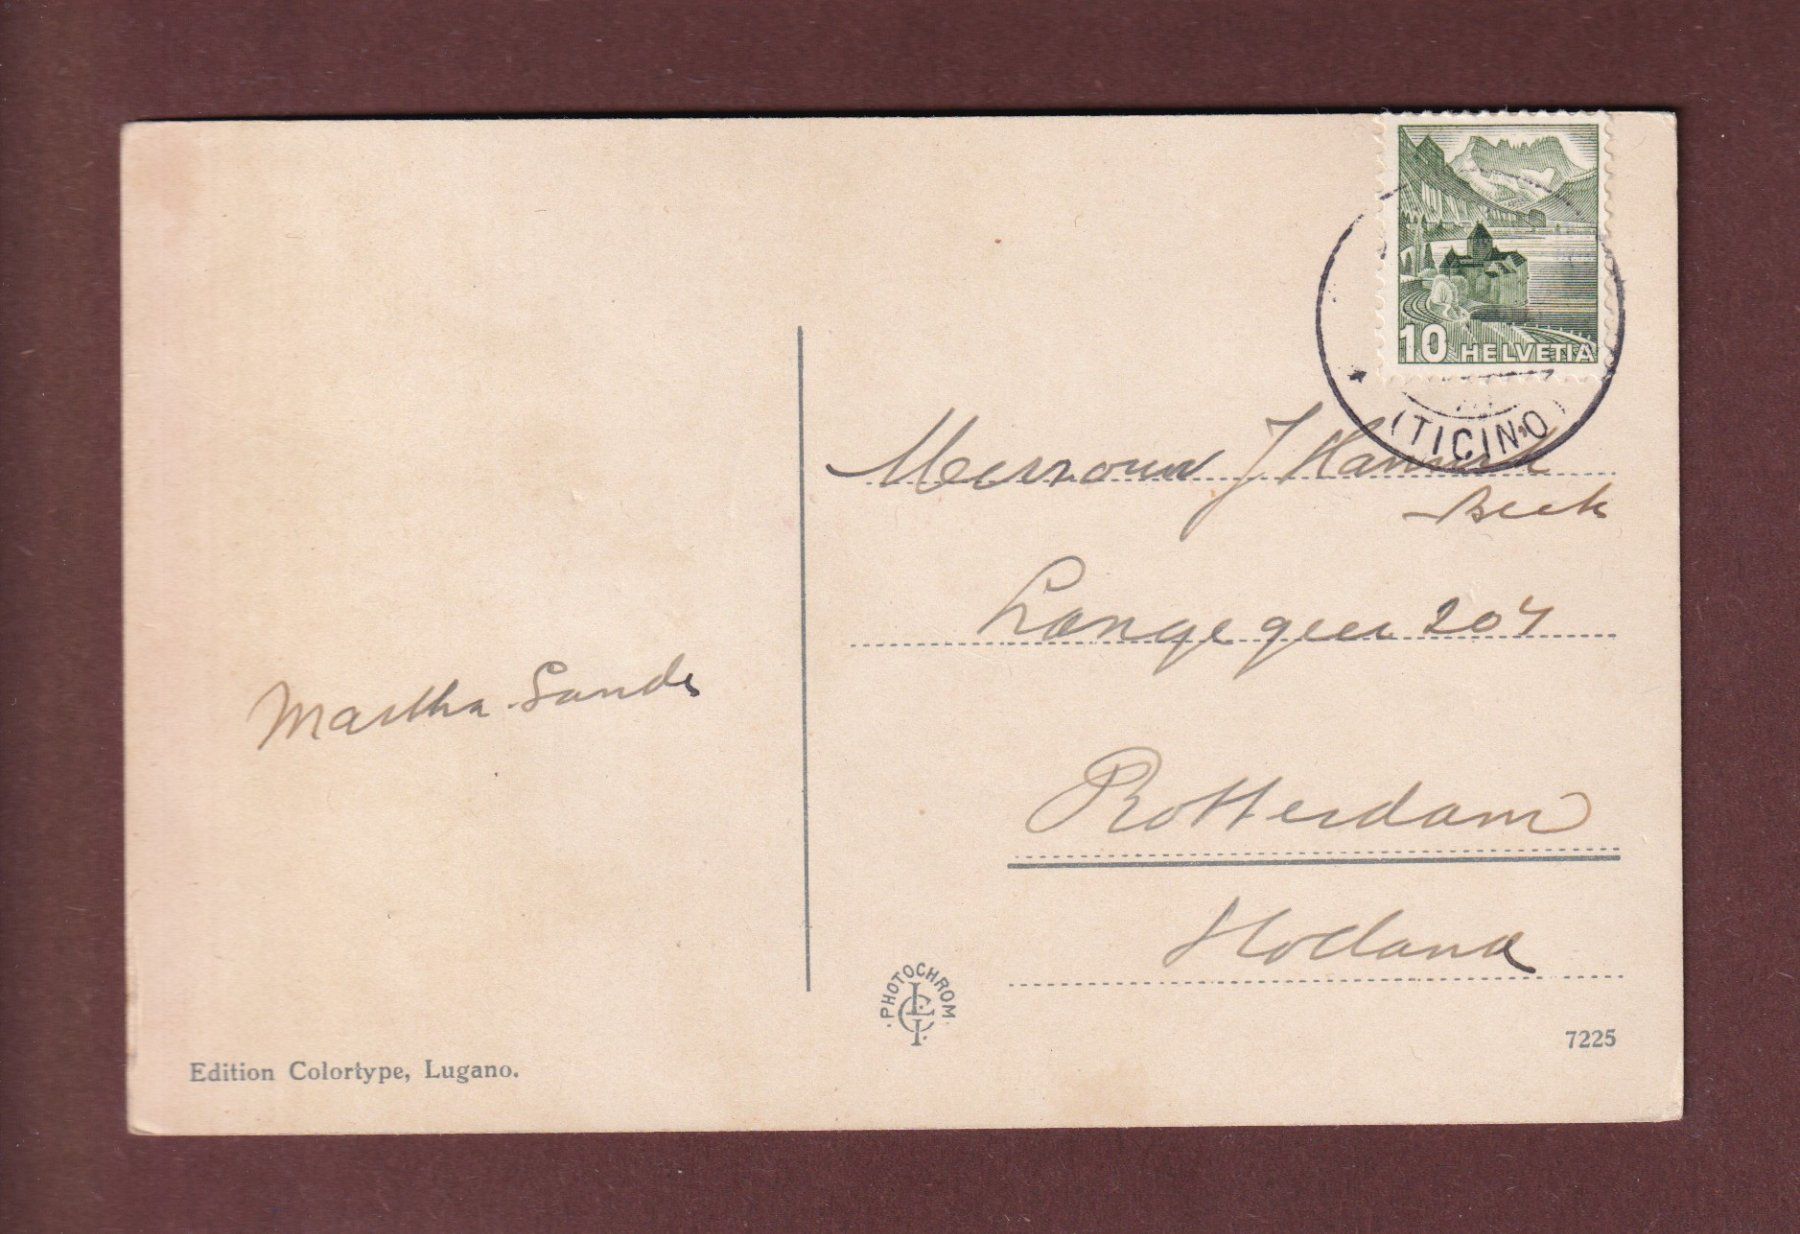 10 HELVETIA
(TICINO)
Mevrouw J
Lange geer 204
Rotterdam
Holland
Martha
PHOTOCHROM
Edition Colortype, Lugano.
7225